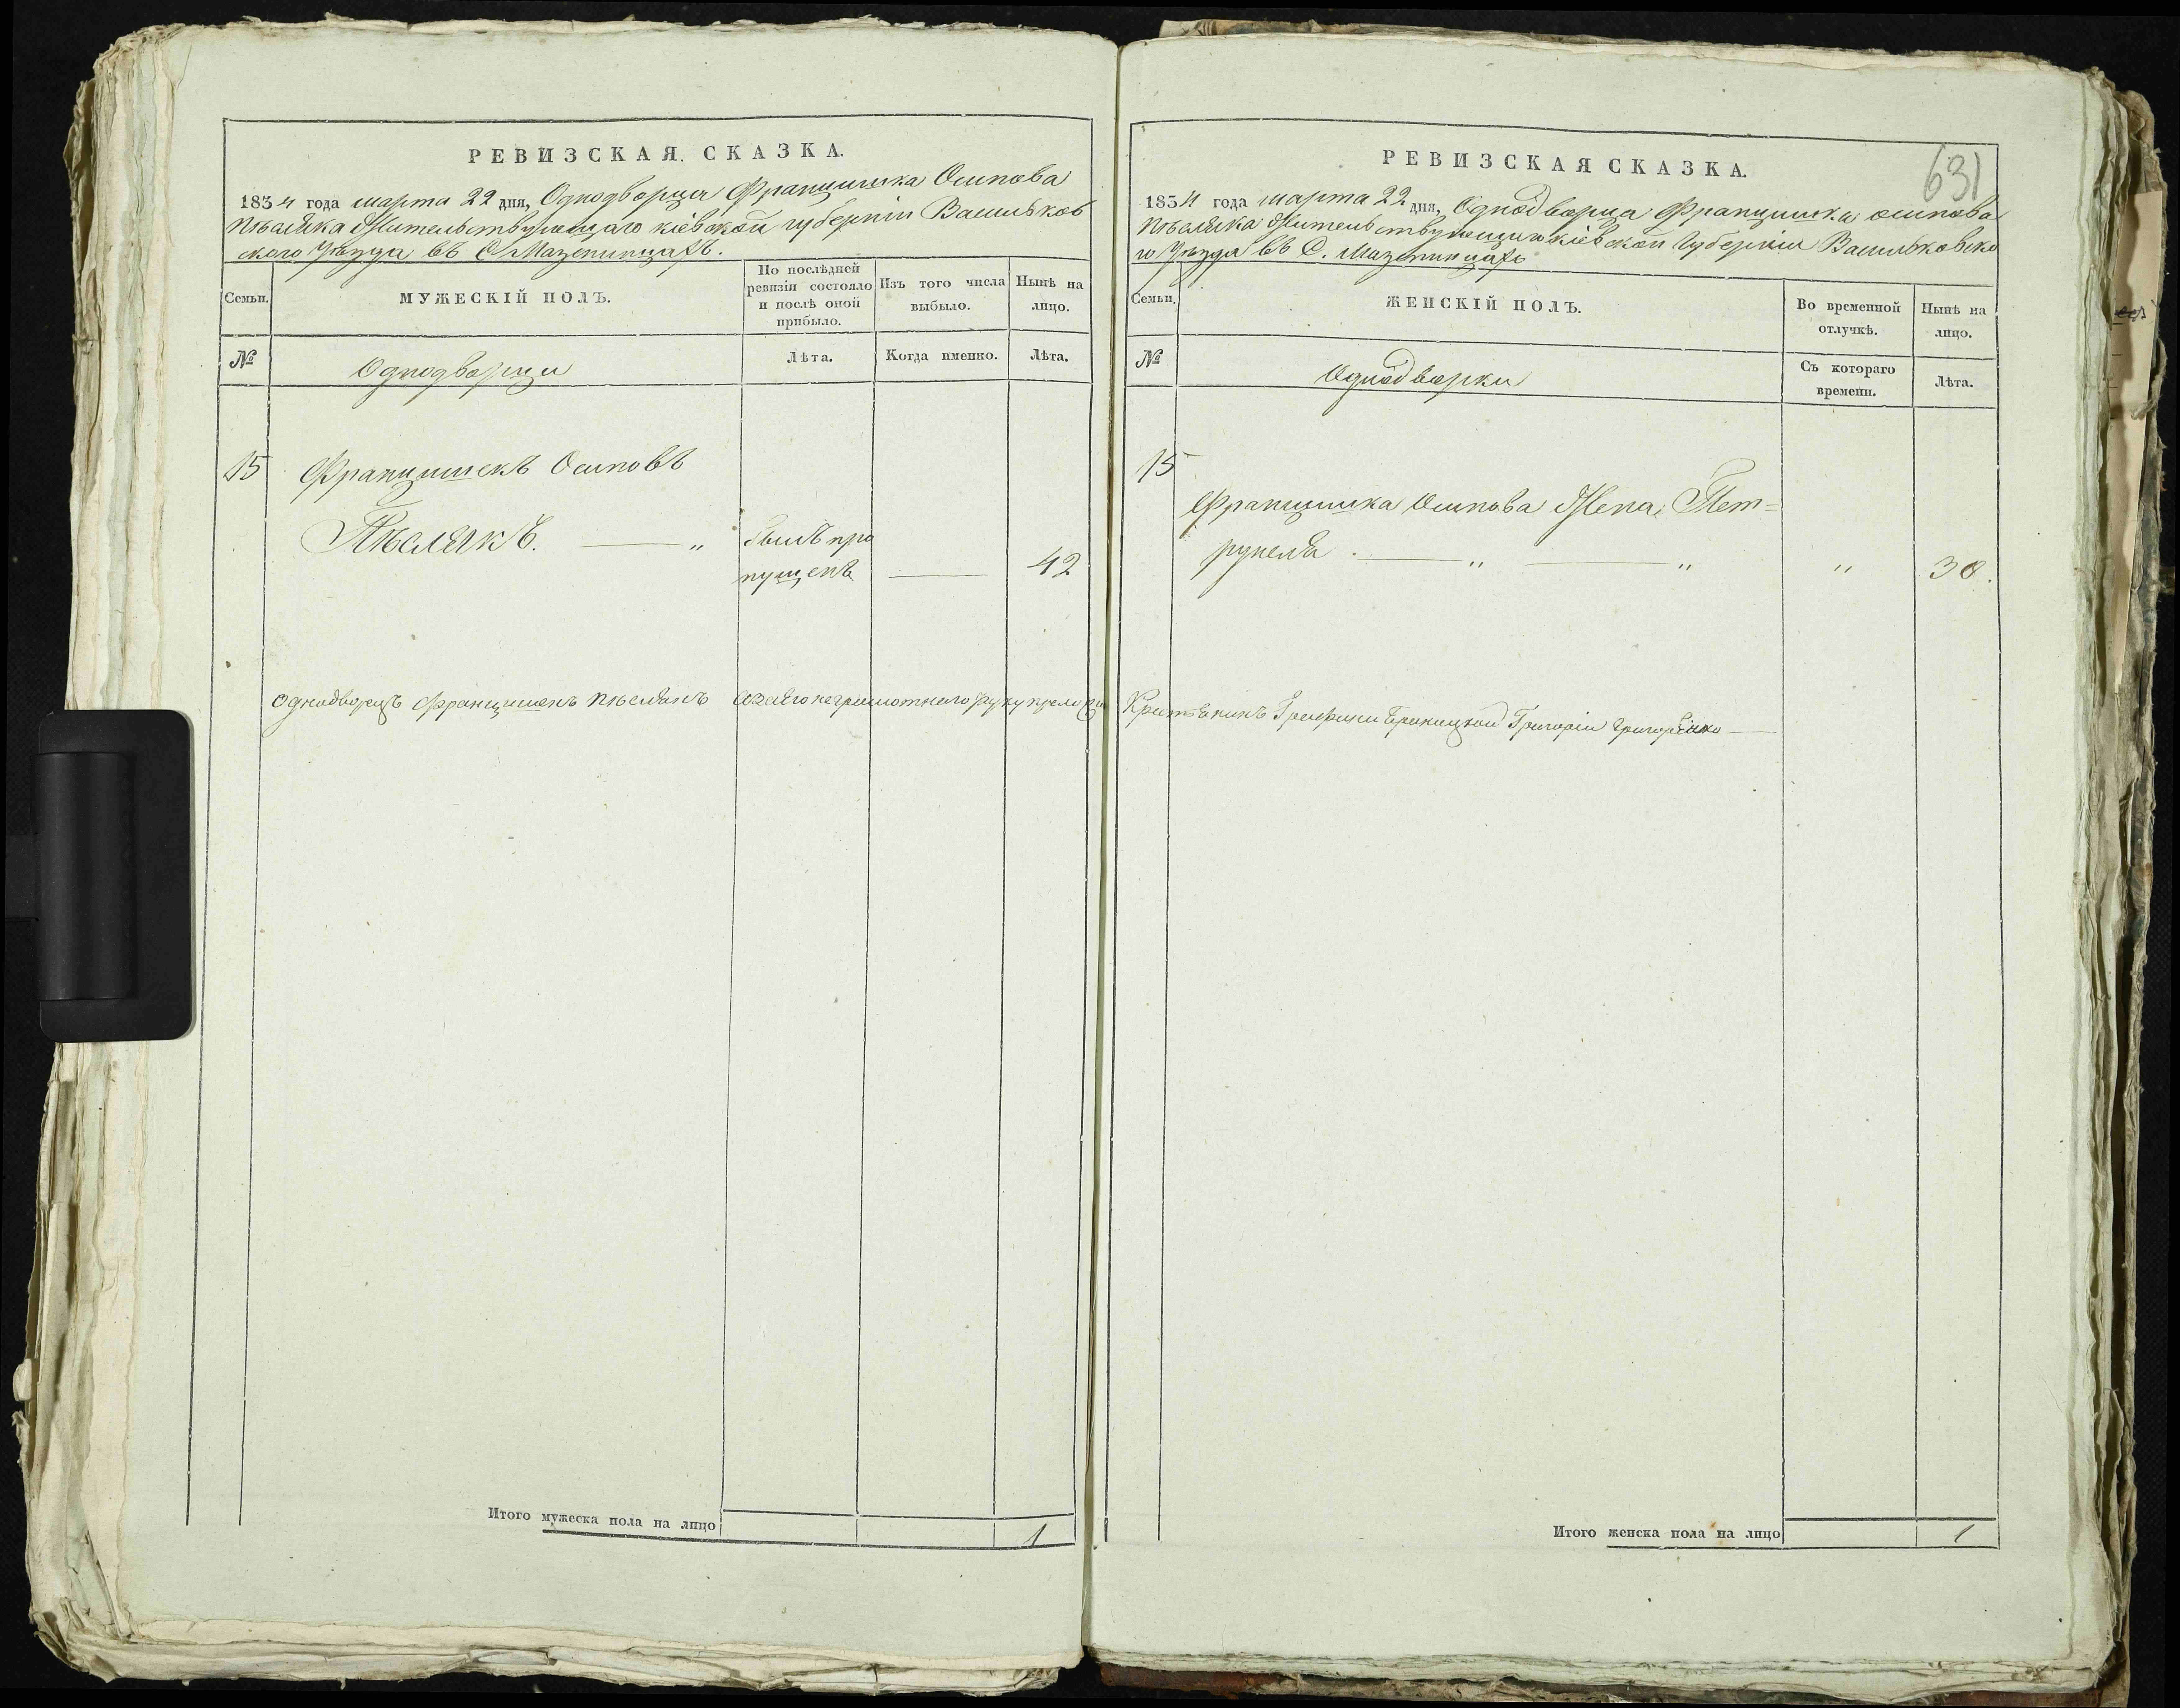 РЕВИЗСКАЯ СКАЗКА.
1834 года марта 22 дня, Однодворца Францишка Осипова
Пѣсляка Жительствующаго кіевской губерніи Васильков
ского уѣзда въ С. Мазепинцахъ.
Семьи.
МУЖЕСКІЙ ПОЛЪ.
По послѣдней ревизіи состояло и послѣ оной прибыло.
Изъ того числа выбыло.
Нынѣ на лицо.
№
Однодворци
Лѣта.
Когда именно.
Лѣта.
15 Францишекъ Осиповъ
Пѣслякъ. — „ былъ про
пущенъ — 42
Однодворецъ Францишекъ Пѣслякъ а за его неграмотнаго руку приложилъ
Итого мужеска пола на лицо 1
631
РЕВИЗСКАЯ СКАЗКА.
1834 года марта 22 дня, Однодворца Францишка осипова
Пѣсляка Жительствующаго кіевской Губерніи Васильковско
го уѣзда въ С. Мазепинцахъ
Семьи.
ЖЕНСКІЙ ПОЛЪ.
Во временной отлучкѣ.
Нынѣ на лицо.
№
Однодворки
Съ котораго времени.
Лѣта.
15
Францишка Осипова Жена Пет=
рунеля. — „ — „ „ 30.
Крестьянинъ Графини Браницкой Григорій Григоренко —
Итого женска пола на лицо 1